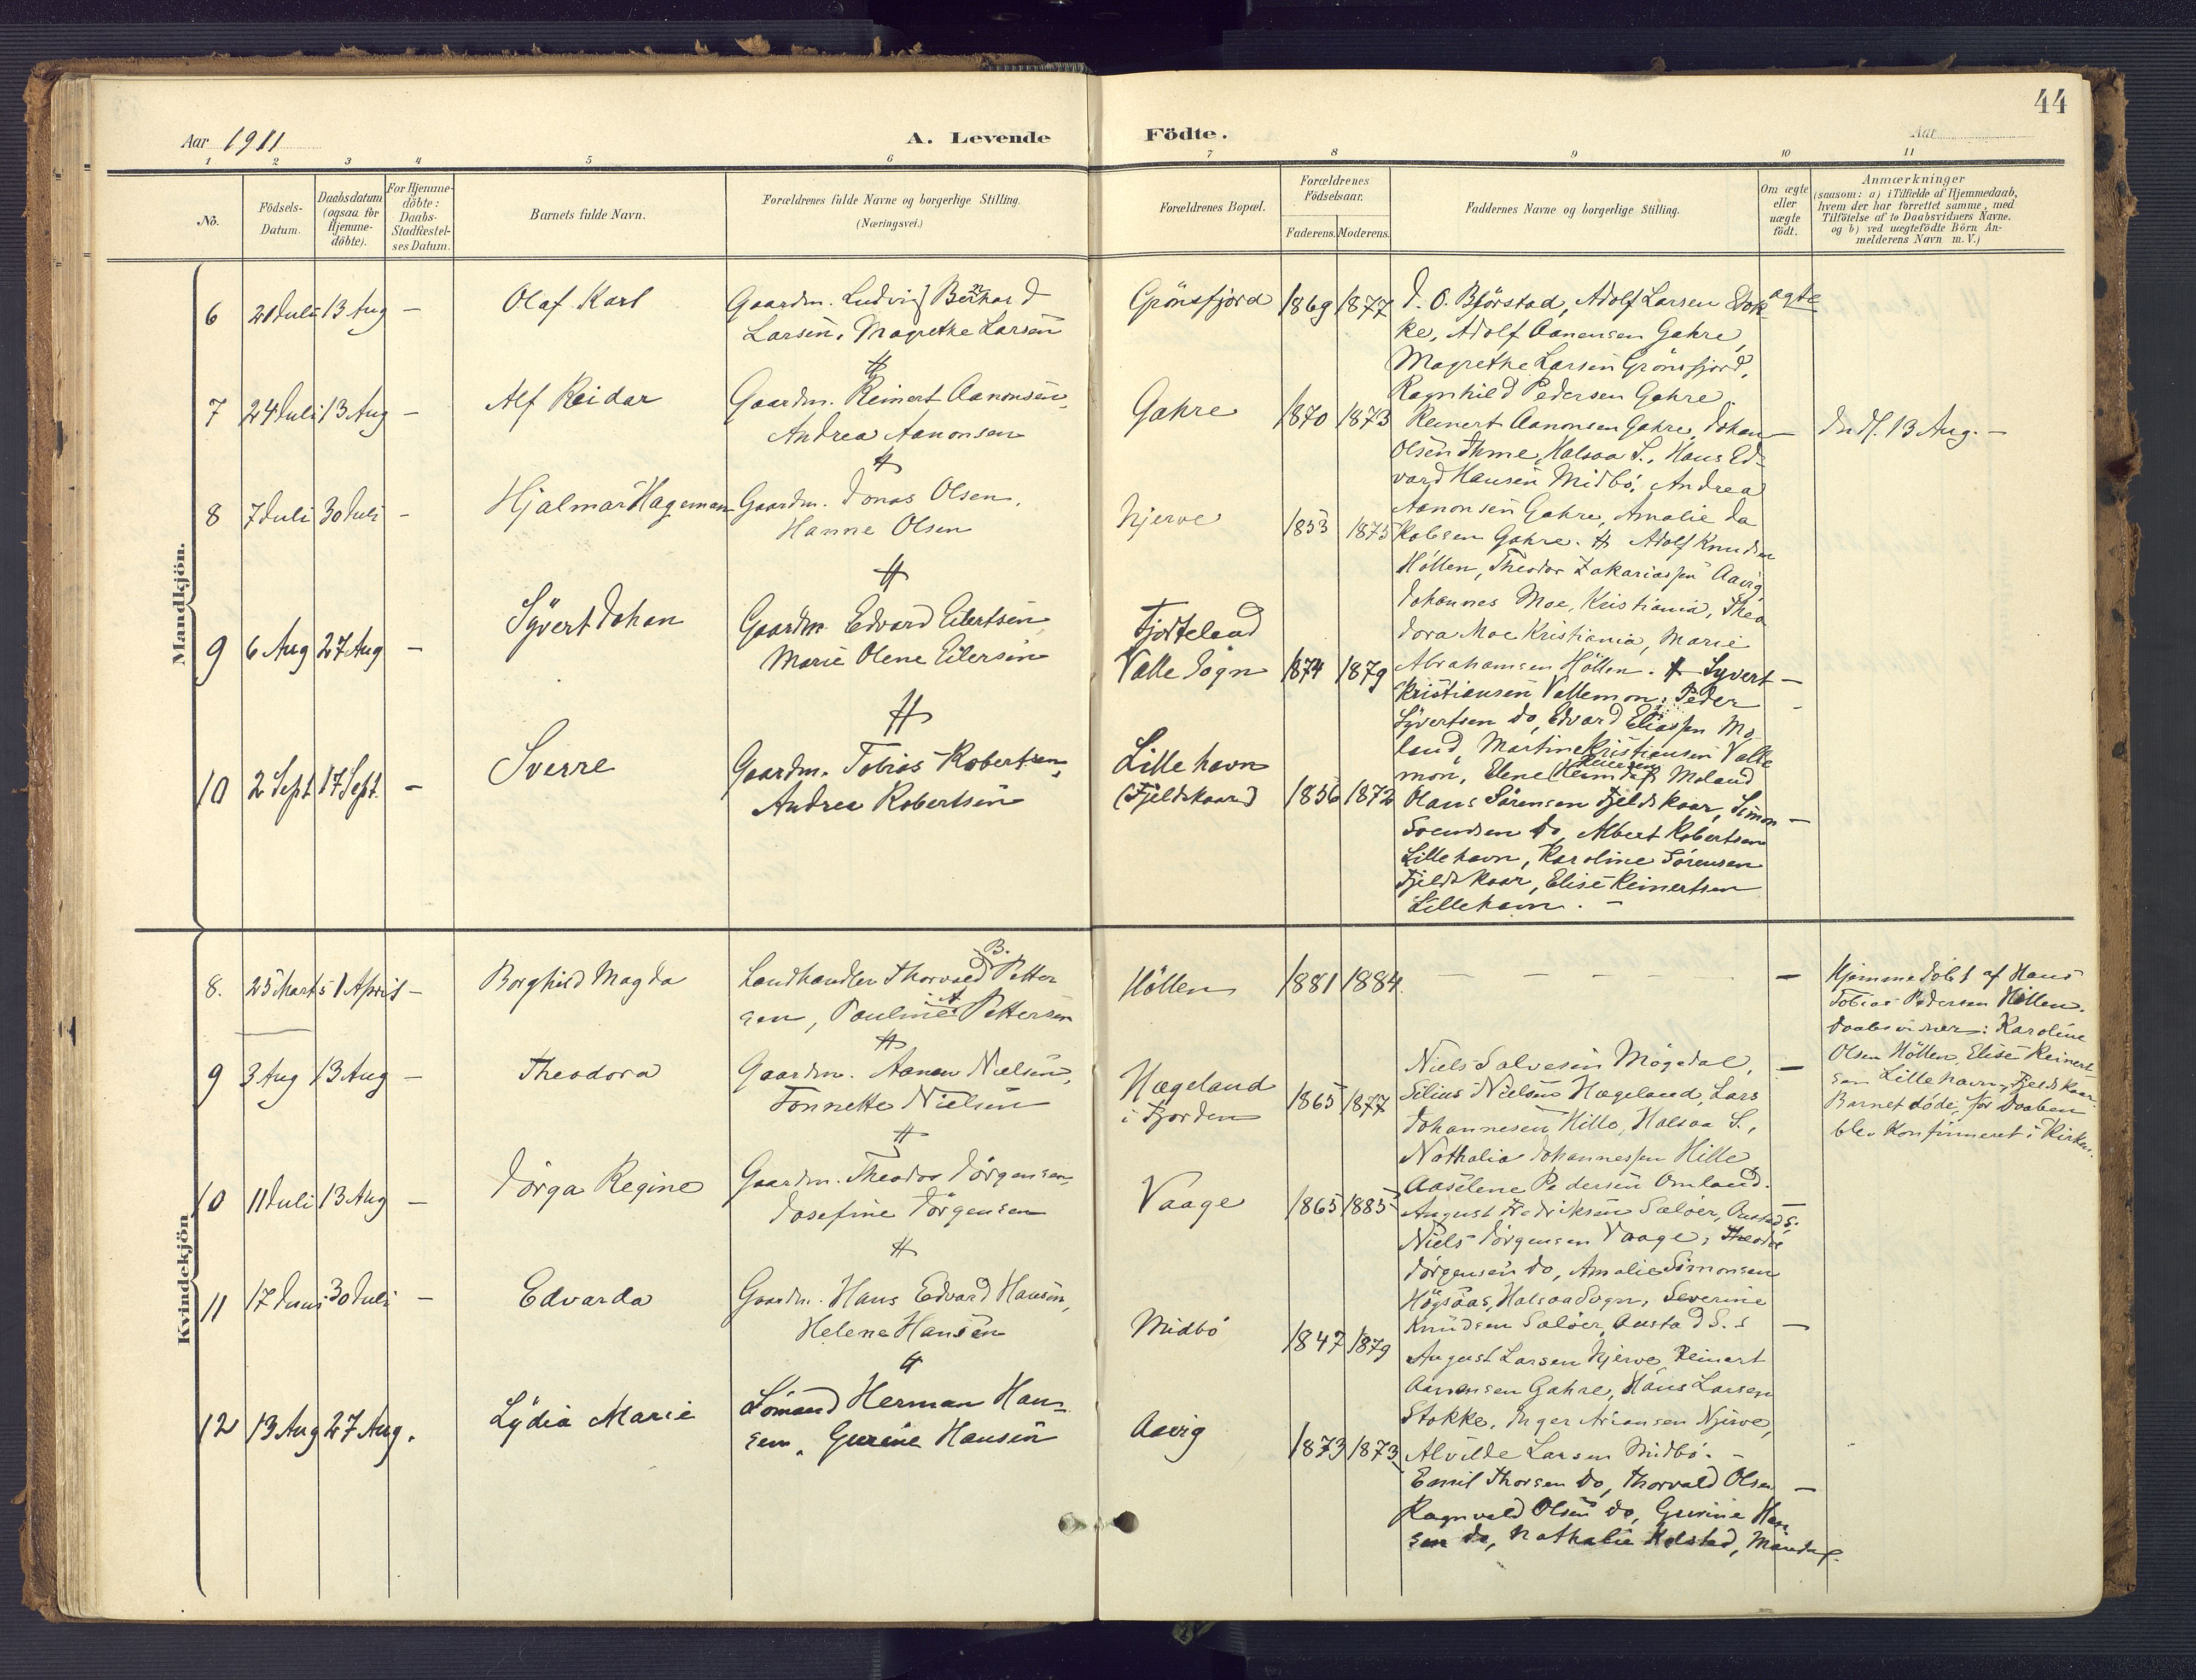 44
Aar 1911
A. Levende
Födte.
Aar
1 2 3 4 5 6 7 8 9 10 11
No.
Födsels-
Datum.
Daabsdatum
(ogsaa for
Hjemme-
döbte).
For Hjemme-
döbte:
Daabs-
Stadfæstel-
ses Datum.
Barnets fulde Navn.
Forældrenes fulde Navne og borgerlige Stilling.
(Næringsvei.)
Forældrenes Bopæl.
Forældrenes
Födselsaar.
Faderens. Moderens.
Faddernes Navne og borgerlige Stilling.
Om ægte
eller
uægte
födt.
Anmærkninger
(saasom: a) i Tilfælde af Hjemmedaab,
hvem der har forrettet samme, med
Tilföielse af to Daabsvidners Navne.
og b) ved uægtefödte Börn An-
melderens Navn m. V.)
Mandkjön.
6 21 Juli 13 Aug –
Olaf Karl
Gaardm. Ludvig Bernhard
Larsen, Magrethe Larsen
Grönsfjord 1869 1877
J. O. Björstad, Adolf Larsen Stok-
ke, Adolf Aanensen Gahre,
Magrethe Larsen Grönsfjord,
Ragnhild Pedersen Gahre.
ægte
7 24 Juli 13 Aug –
Alf Reidar
Gaardm. Reinert Aanonsen,
Andrea Aanonsen
Gahre 1870 1873
Reinert Aanonsen Gahre, Johan
Olsen Thme, Halsaa S., Hans Ed-
vard Hansen Midbö, Andrea
Aanonsen Gahre, Amalie Ja
kobsen Gahre.
–
Indf. 13 Aug. –
8 7 Juli 30 Juli –
Hjalmar Hageman
Gaardm. Jonas Olsen,
Hanne Olsen
Njerve 1853 1875
Adolf Knudsen
Höllen, Theodor Zakariassen Aavig
Johannes Moe, Kristiania, Theo
dora Moe Kristiania, Marie
Abrahamsen Höllen.
9 6 Aug 27 Aug –
Syvert Johan
Gaardm. Edvard Eilertsen
Marie Olene Eilersen
Fjorteland
Valle Sogn 1874 1879
Syvert –
Kristiansen Vallemon, Peder
Syvertsen do, Edvard Eliassen Mo-
land, Martine Kristiansen Valle
mon, Elene Moland
10 2 Sept 17 Sept. –
Sverre
Gaardm. Tobias Robertsen,
Andrea Robertsen
Lillehavn
(Fjeldskaar) 1856 1872
Olaus Sörensen Fjeldskaar, Simon –
Svendsen do, Albert Robertsen
Lillehavn, Karoline Sörensen
Fjeldskaar, Elise Reinertsen
Lillehavn. –
Kvindekjön
8. 25 Marts 1 April –
Borghild Magda
Landhandler Thorvald B. Petter
sen, Pauline A Pettersen
Höllen 1881 1884.
– – – – –
Hjemmedöbt af Hans
Tobias Pedersen Höllen.
Daabsvidner: Karoline
Olsen Höllen, Elise Reinert-
sen Lillehavn, Fjeldskaar.
Barnet döde, för Daaben
blev Konfirmeret i Kirken.
9 3 Aug 13 Aug –
Theodora
Gaardm. Aanen Nielsen,
Tonnette Nielsen
Hægeland
i Fjorden 1865 1877
Niels Salvesen Mögedal, –
Silius Nielsen Hægeland, Lars
Johannesen Hille, Halsaa S.,
Nathalia Johannessen Hille
Aaselene Pedersen Omland.
10 11 Juli 13 Aug –
Jörga Regine
Gaardm. Theodor Jörgensen,
Josefine Jörgensen
Vaage 1865 1885
August Fredriksen Salöer, Austad S.
Niels Jörgensen Vaage, Theodor
Jörgensen do, Amalie Simonsen
Högsaas, Halsaa Sogn, Severine
Knudsen Salöer, Austad S.
11 17 Juni 30 Juli –
Edvarda
Gaardm. Hans Edvard Hansen,
Helene Hansen
Midbö 1847 1879
–
August Larsen Njerve, Reinart
Aanensen Gahre, Hans Larsen
Stokke, Inger Njerve,
Alvilde Larsen Midbö. –
12 13 Aug 27 Aug.
Lydia Marie
Sömand Herman Han-
sen, Gurine Hansen
Aavig 1873 1873
Emil Thorsen do, Thorvald Olsen –
Ragnvald Olsen do, Gurine Han
sen do, Nathalie Holstad, Mandal.